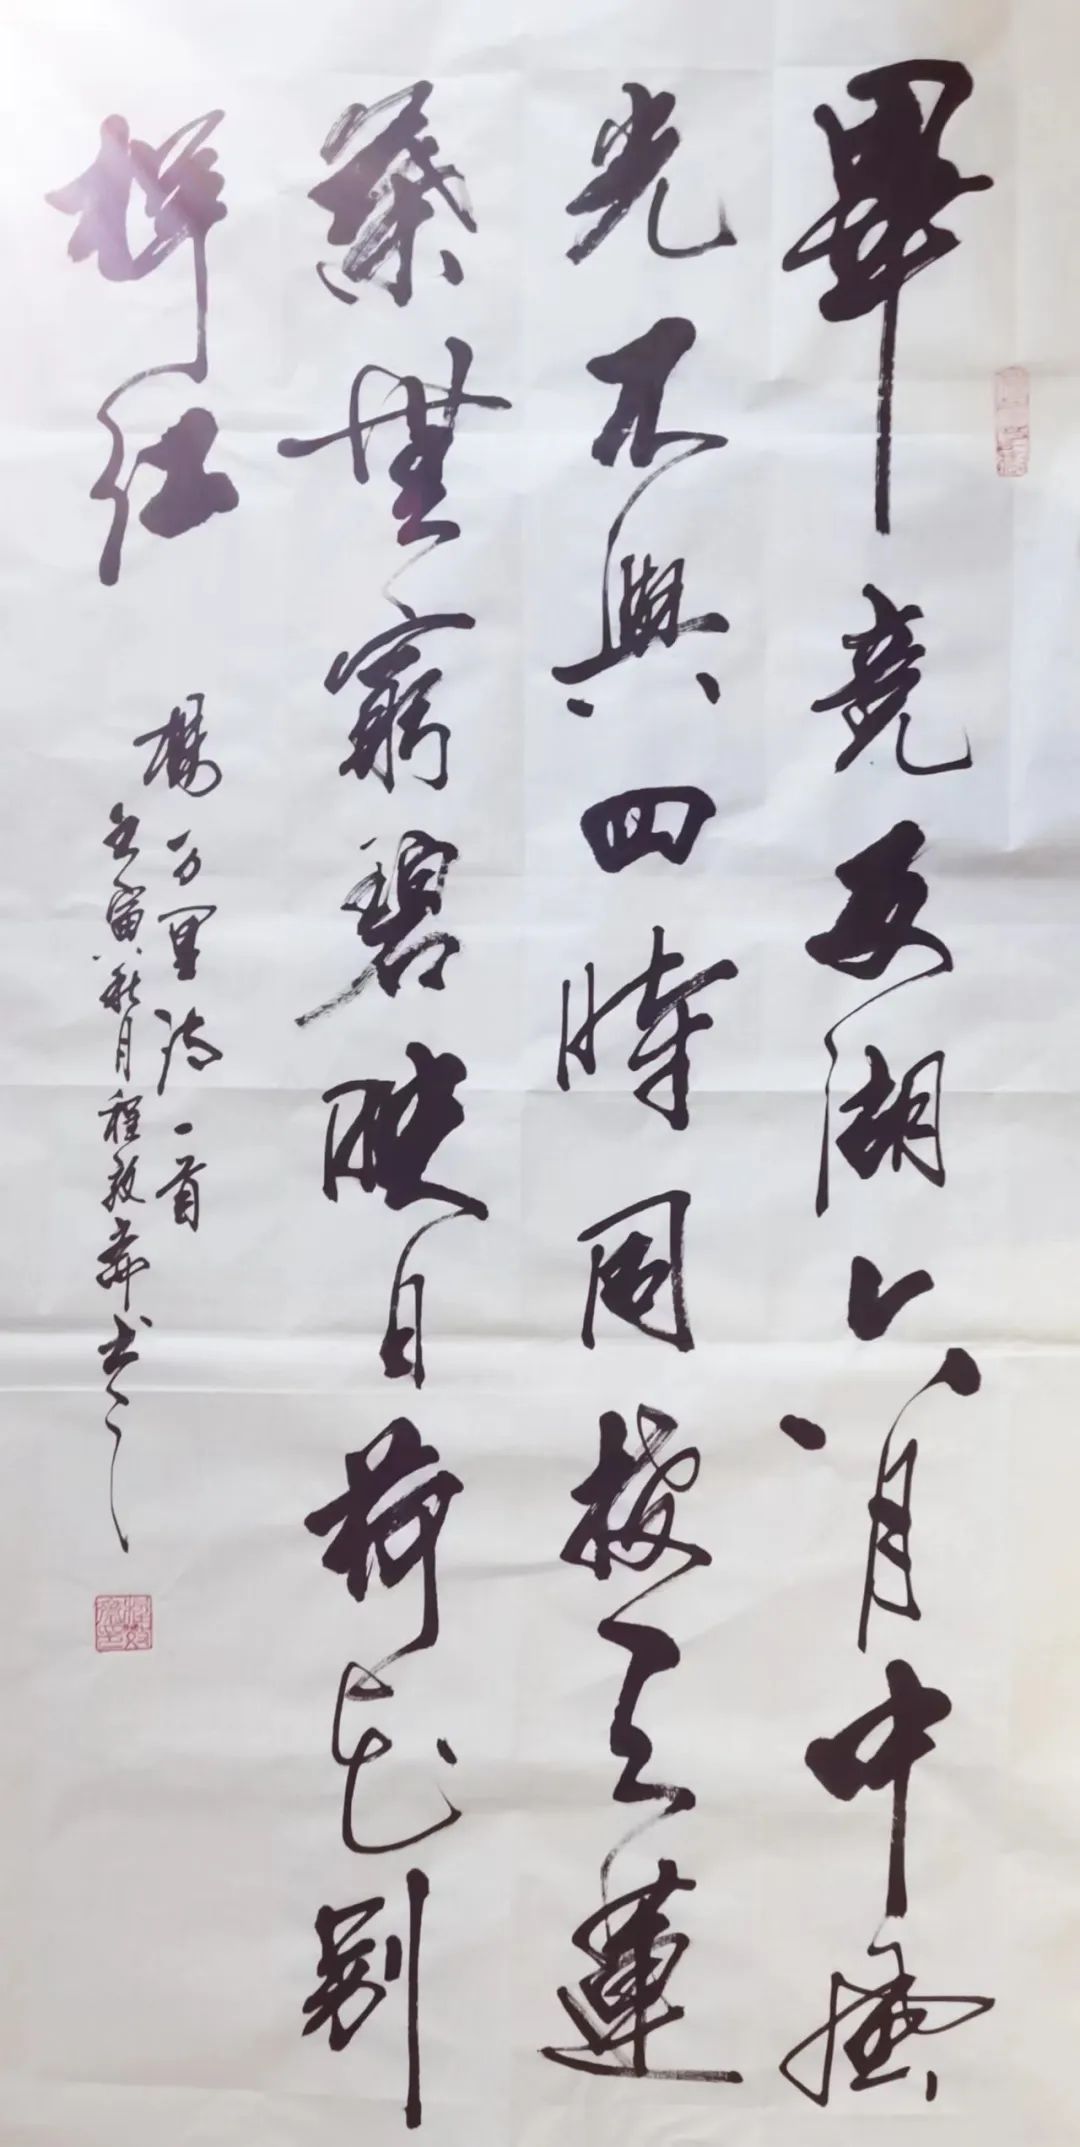 畢竟西湖六月中風
光不與四時同接天蓮
葉無窮碧映日荷花別
樣紅
楊万里詩一首
壬寅秋月程